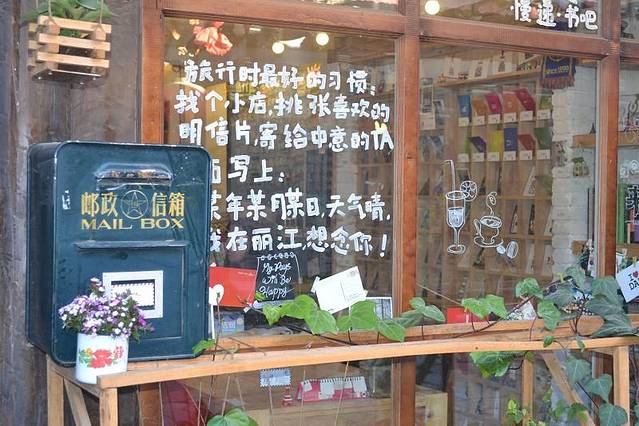 慢递·书吧
旅行时最好的习惯:
找个小店,挑张喜欢的
明信片,寄给中意的TA
写上:
某年某月某日,天气晴,
在丽江,想念你!
邮政 信箱
MAIL BOX
My Days
Will Be
Happy